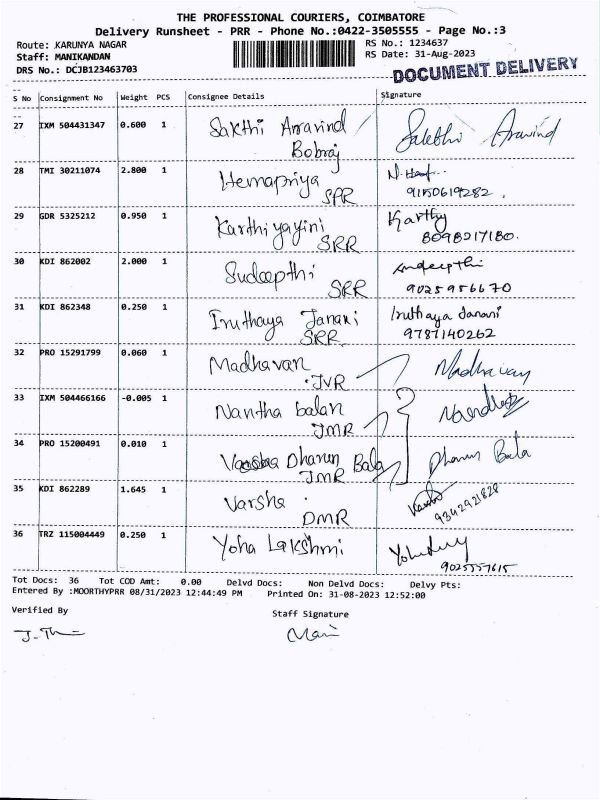 THE PROFESSIONAL COURIERS, COIMBATORE
Delivery Runsheet - PRR - Phone No.:0422-3505555 - Page No.:3
Route: KARUNYA NAGAR RS No.: 1234637
Staff: MANIKANDAN RS Date: 31-Aug-2023
DRS No.: DCJB123463703
DOCUMENT DELIVERY
S No Consignment No Weight PCS Consignee Details Signature
27 IXM 504431347 0.600 1 Sakthi Aravind Sakthi Aravind
Bobraj
28 TMI 30211074 2.800 1 Hemapriya
SPR 9150619282.
29 GDR 5325212 0.950 1 Karthiyayini Karthy
SRR 8098217180.
30 KDI 862002 2.000 1 Sudeepthi Sudeepthi
SRR 9025956670
31 KDI 862348 0.250 1 Iruthaya Janani Iruthaya Janani
SRR 9787140262
32 PRO 15291799 0.060 1 Madhavan Madhavan
JVR
33 IXM 504466166 -0.005 1 Nantha balan
JMR
34 PRO 15200491 0.010 1 Dharun Bala Dharun Bala
JMR
35 KDI 862289 1.645 1 Varsha
DMR 9342921828
36 TRZ 115004449 0.250 1 Yoha Lakshmi
9025557615
Tot Docs: 36 Tot COD Amt: 0.00 Delvd Docs: Non Delvd Docs: Delvy Pts:
Entered By :MOORTHYPRR 08/31/2023 12:44:49 PM Printed On: 31-08-2023 12:52:00
Verified By Staff Signature
Mani